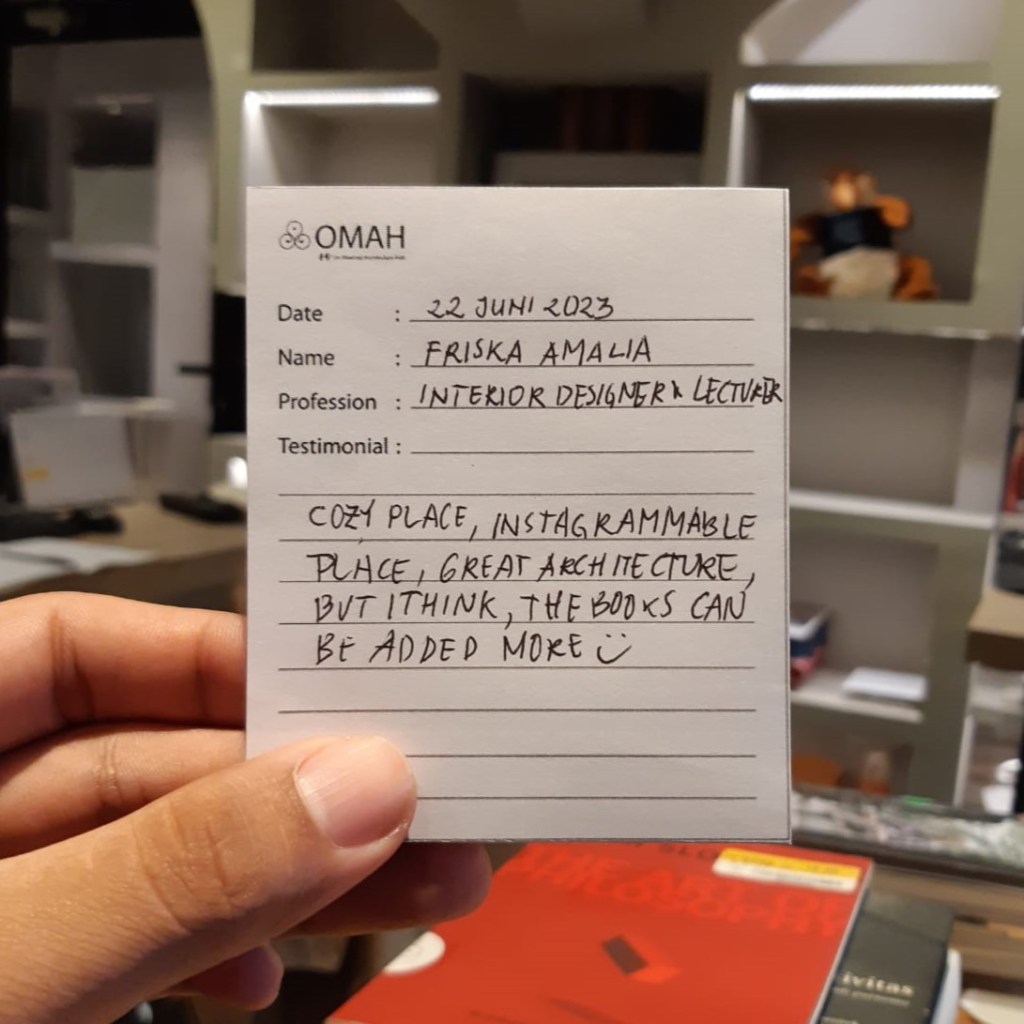 OMAH
Date : 22 JUNI 2023
Name : FRISKA AMALIA
Profession : INTERIOR DESIGNER & LECTURER
Testimonial :
COZY PLACE, INSTAGRAMMABLE
PLACE, GREAT ARCHITECTURE,
BUT I THINK, THE BOOKS CAN
BE ADDED MORE
ivitas